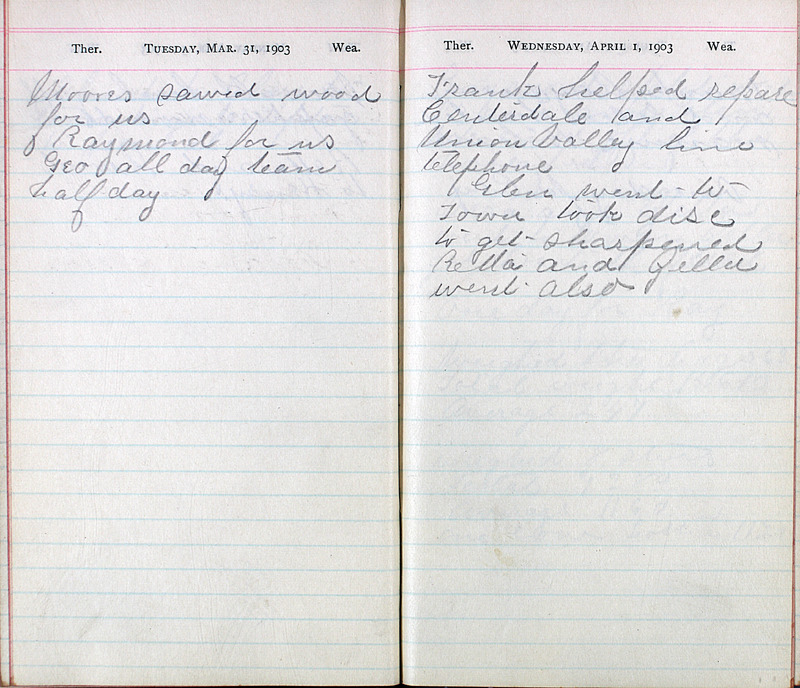 Ther. TUESDAY, MAR. 31, 1903 Wea.
Moores sawed wood
for us
Raymond for us
Geo all day team
half day
Ther. WEDNESDAY, APRIL 1, 1903 Wea.
Frank helped repare
Centerdale and
Union Valley line
telephone
Glen went to
Town took disc
to get sharpened
Retta and Zella
went also